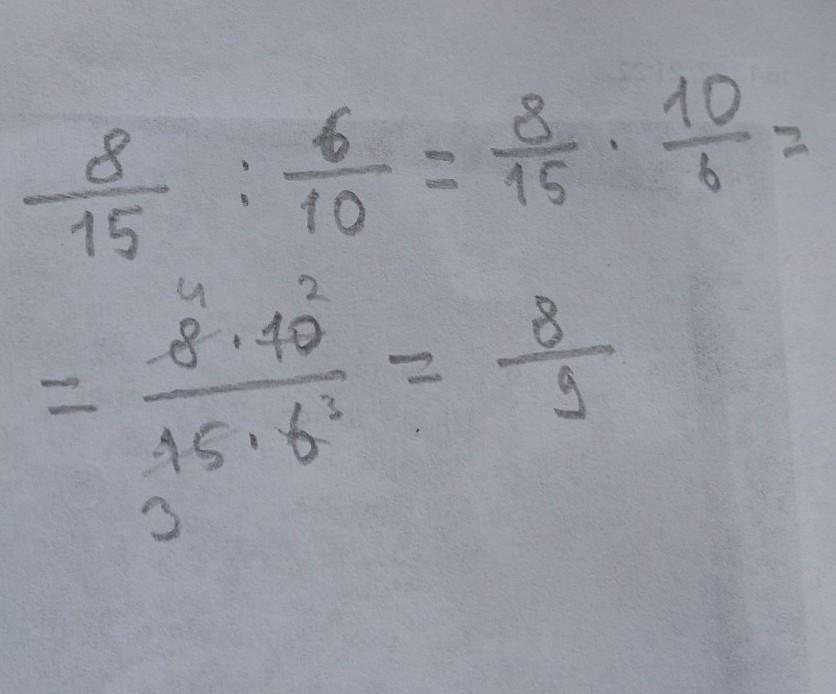 8/15 : 6/10 = 8/15 · 10/6 =
= 8⁴ · 10² / 15₃ · 6³ = 8/9